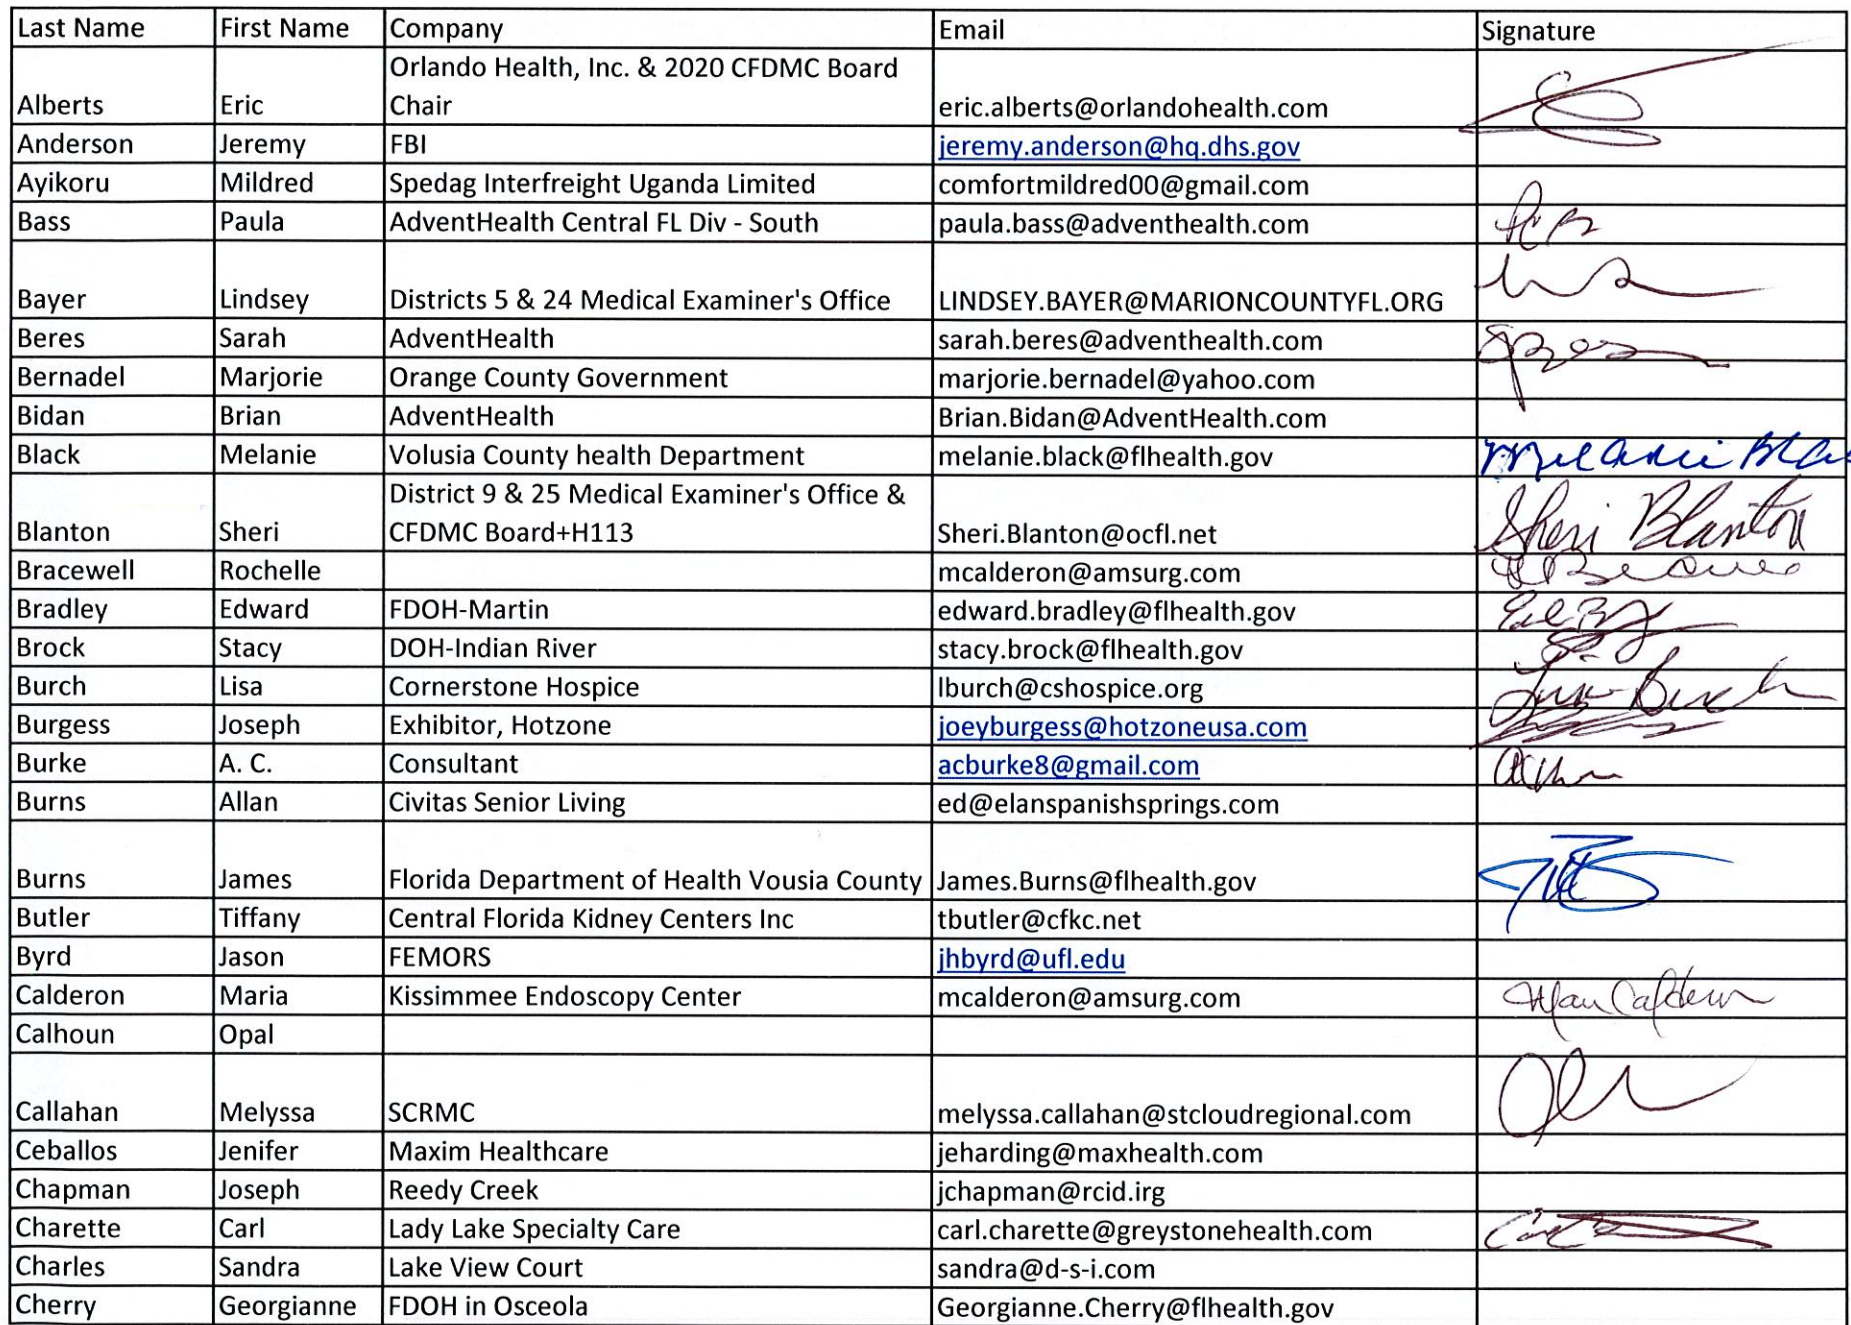 Last Name First Name Company Email Signature
Orlando Health, Inc. & 2020 CFDMC Board
Alberts Eric Chair eric.alberts@orlandohealth.com
Anderson Jeremy FBI jeremy.anderson@hq.dhs.gov
Ayikoru Mildred Spedag Interfreight Uganda Limited comfortmildred00@gmail.com
Bass Paula AdventHealth Central FL Div - South paula.bass@adventhealth.com
Bayer Lindsey Districts 5 & 24 Medical Examiner's Office LINDSEY.BAYER@MARIONCOUNTYFL.ORG
Beres Sarah AdventHealth sarah.beres@adventhealth.com
Bernadel Marjorie Orange County Government marjorie.bernadel@yahoo.com
Bidan Brian AdventHealth Brian.Bidan@AdventHealth.com
Black Melanie Volusia County health Department melanie.black@flhealth.gov Melanie Blac
District 9 & 25 Medical Examiner's Office &
Blanton Sheri CFDMC Board+H113 Sheri.Blanton@ocfl.net Sheri Blanton
Bracewell Rochelle mcalderon@amsurg.com
Bradley Edward FDOH-Martin edward.bradley@flhealth.gov
Brock Stacy DOH-Indian River stacy.brock@flhealth.gov
Burch Lisa Cornerstone Hospice lburch@cshospice.org Lisa Burch
Burgess Joseph Exhibitor, Hotzone joeyburgess@hotzoneusa.com
Burke A. C. Consultant acburke8@gmail.com
Burns Allan Civitas Senior Living ed@elanspanishsprings.com
Burns James Florida Department of Health Vousia County James.Burns@flhealth.gov
Butler Tiffany Central Florida Kidney Centers Inc tbutler@cfkc.net
Byrd Jason FEMORS jhbyrd@ufl.edu
Calderon Maria Kissimmee Endoscopy Center mcalderon@amsurg.com
Calhoun Opal
Callahan Melyssa SCRMC melyssa.callahan@stcloudregional.com
Ceballos Jenifer Maxim Healthcare jeharding@maxhealth.com
Chapman Joseph Reedy Creek jchapman@rcid.irg
Charette Carl Lady Lake Specialty Care carl.charette@greystonehealth.com
Charles Sandra Lake View Court sandra@d-s-i.com
Cherry Georgianne FDOH in Osceola Georgianne.Cherry@flhealth.gov